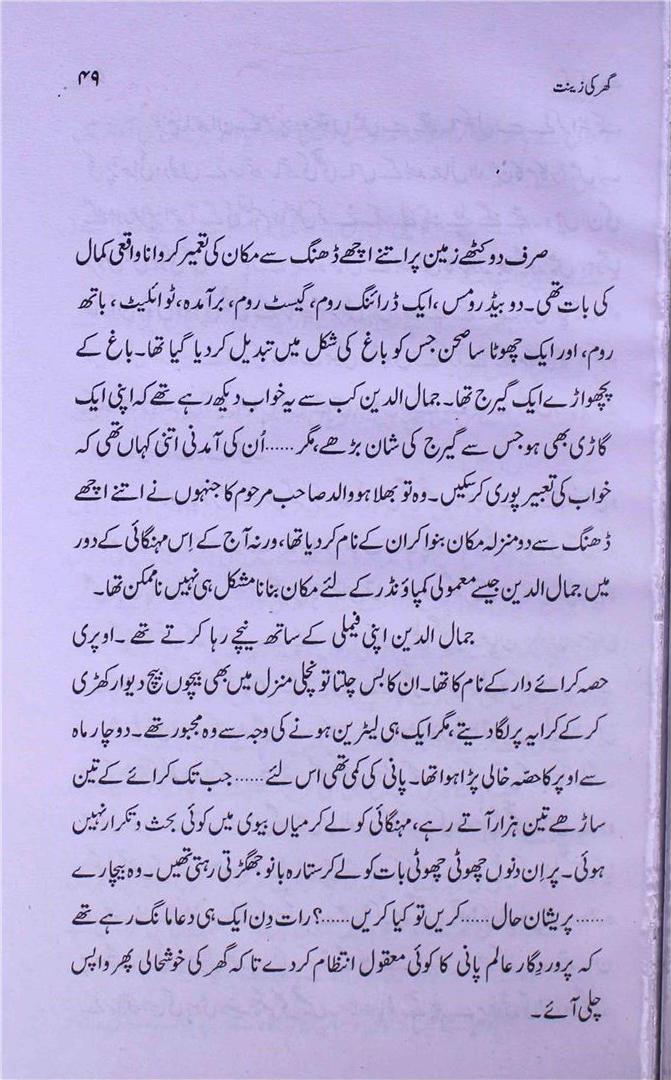 گھر کی زینت
۴۹
صرف دو کٹھے زمین پر اتنے اچھے ڈھنگ سے مکان کی تعمیر کروانا واقعی کمال
کی بات تھی۔ دو بیڈ رومس، ایک ڈرائنگ روم، گیسٹ روم، برآمدہ، ٹوائلیٹ، باتھ
روم، اور ایک چھوٹا سا صحن جس کو باغ کی شکل میں تبدیل کر دیا گیا تھا۔ باغ کے
پچھواڑے ایک گیرج تھا۔ جمال الدین کب سے یہ خواب دیکھ رہے تھے کہ اپنی ایک
گاڑی بھی ہو جس سے گیرج کی شان بڑھے، مگر ...... اُن کی آمدنی اتنی کہاں تھی کہ
خواب کی تعبیر پوری کر سکیں۔ وہ تو بھلا ہو والد صاحب مرحوم کا جنہوں نے اتنے اچھے
ڈھنگ سے دو منزلہ مکان بنوا کر ان کے نام کر دیا تھا، ورنہ آج کے اِس مہنگائی کے دور
میں جمال الدین جیسے معمولی کمپاؤنڈر کے لئے مکان بنانا مشکل ہی نہیں ناممکن تھا۔
جمال الدین اپنی فیملی کے ساتھ نیچے رہا کرتے تھے۔ اوپری
حصہ کرائے دار کے نام کا تھا۔ ان کا بس چلتا تو نچلی منزل میں بھی بیچوں بیچ دیوار کھڑی
کر کے کرایہ پر لگا دیتے، مگر ایک ہی لیٹرین ہونے کی وجہ سے وہ مجبور تھے۔ دو چار ماہ
سے اوپر کا حصّہ خالی پڑا ہوا تھا۔ پانی کی کمی تھی اس لئے ...... جب تک کرائے کے تین
ساڑھے تین ہزار آتے رہے، مہنگائی کو لے کر میاں بیوی میں کوئی بحث و تکرار نہیں
ہوئی۔ پر اِن دنوں چھوٹی چھوٹی بات کو لے کر ستارہ بانو جھگڑتی رہتی تھیں۔ وہ بیچارے
...... پریشان حال ...... کریں تو کیا کریں ......؟ رات دِن ایک ہی دعا مانگ رہے تھے
کہ پروردِگار عالم پانی کا کوئی معقول انتظام کر دے تاکہ گھر کی خوشحالی پھر واپس
چلی آئے۔